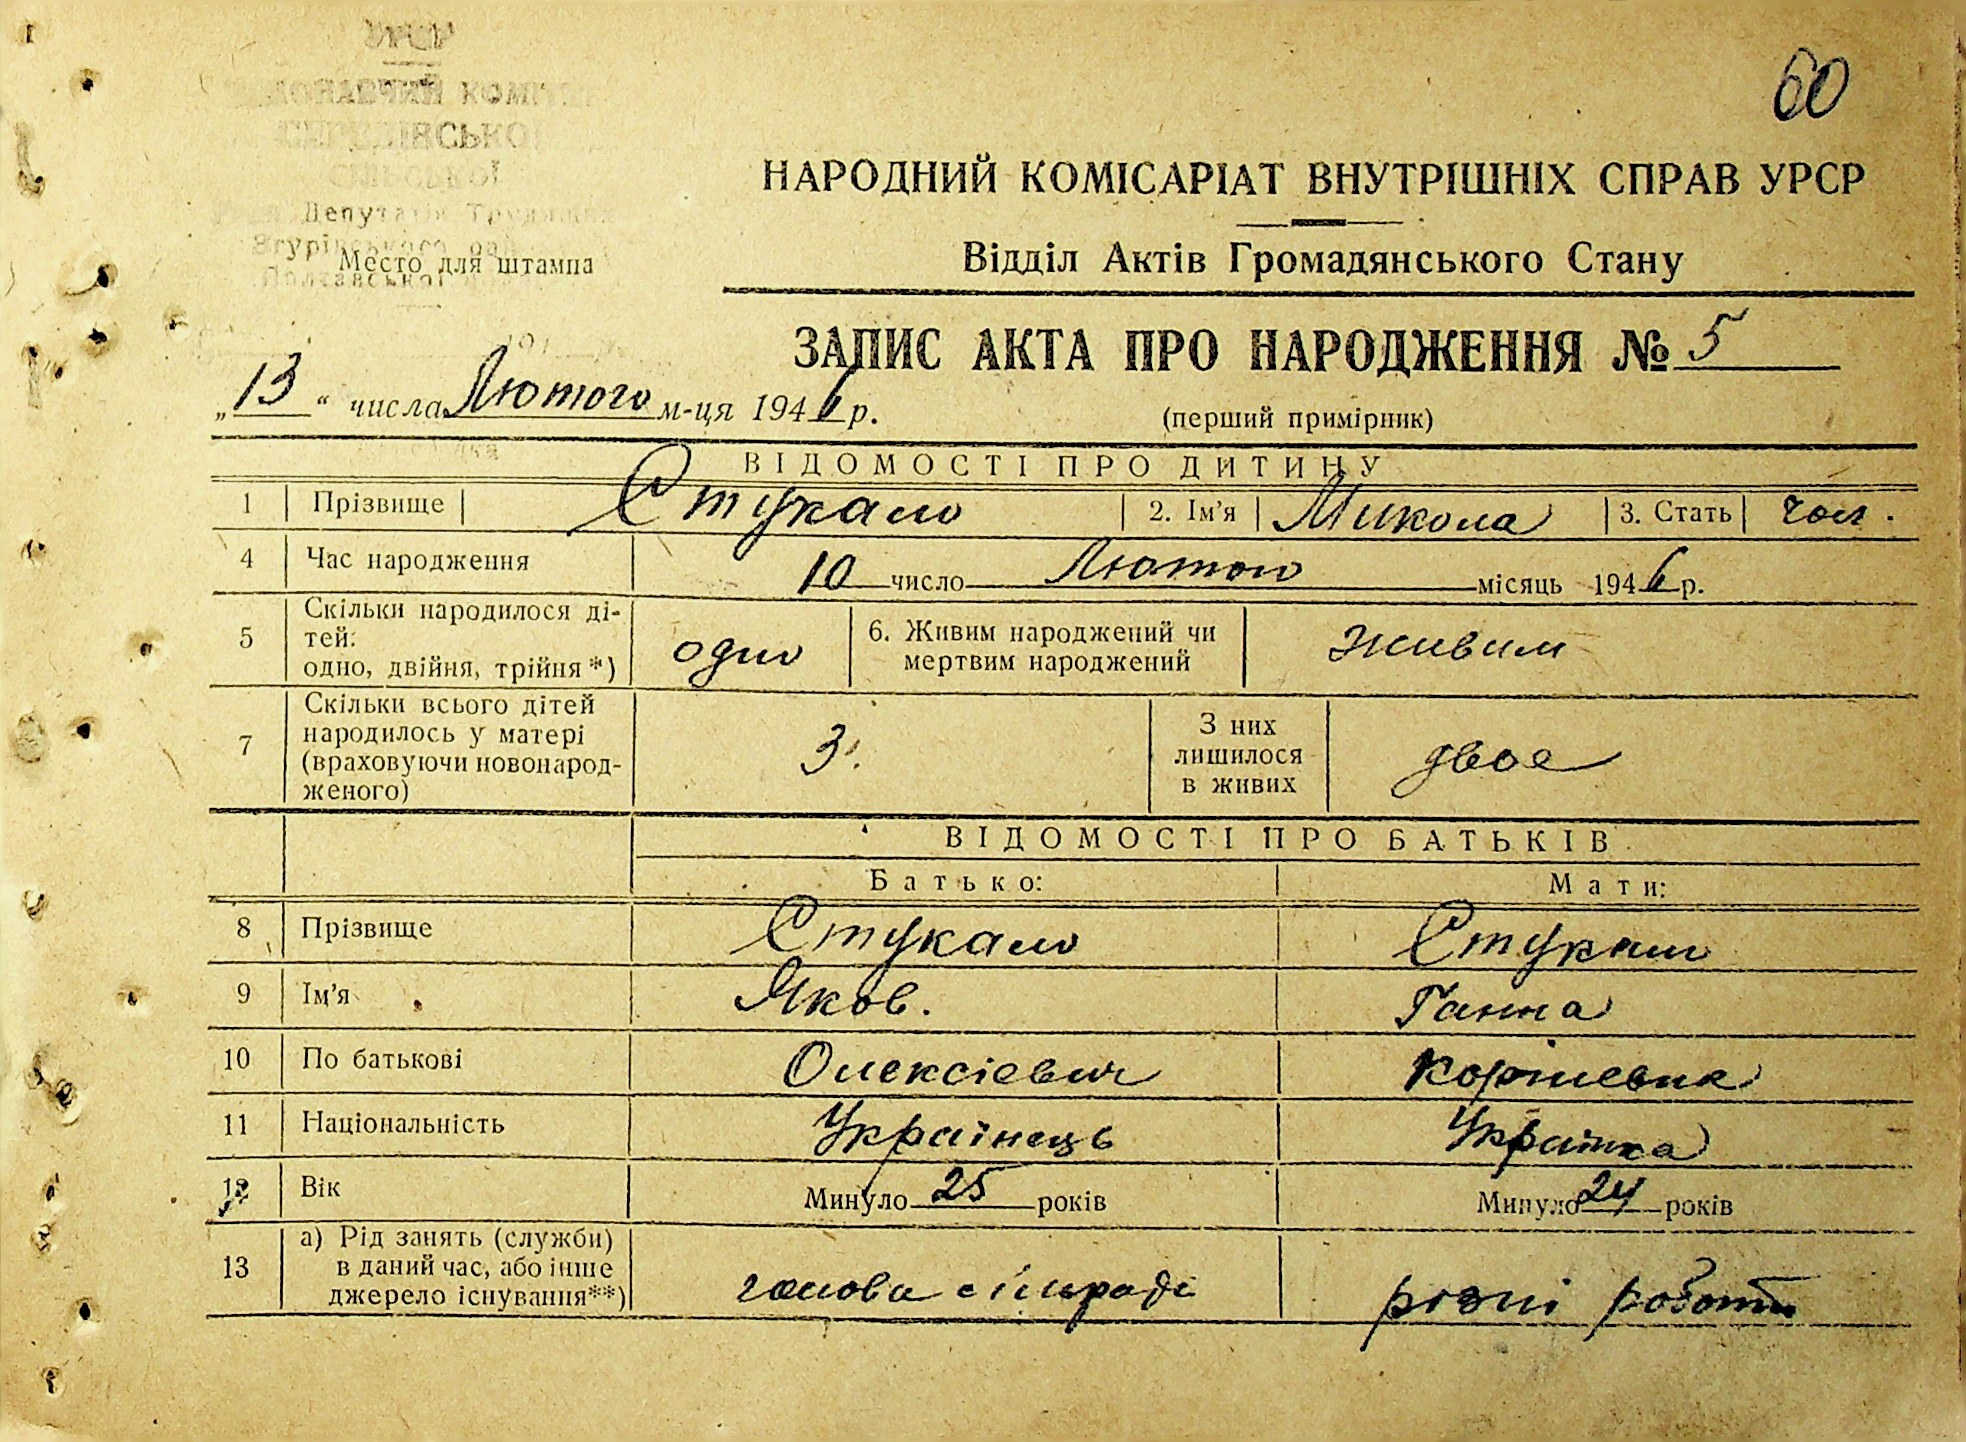 60
УРСР
НАРОДНИЙ КОМІСАРІАТ ВНУТРІШНІХ СПРАВ УРСР
Відділ Актів Громадянського Стану
Депутатів Трудящих
Место для штампа
Полтавської
ЗАПИС АКТА ПРО НАРОДЖЕННЯ № 5
„13“ числа Лютого м-ця 1946 р.
(перший примірник)
ВІДОМОСТІ ПРО ДИТИНУ
1 Прізвище Стукало 2. Ім'я Микола 3. Стать чол.
4 Час народження 10 число Лютого місяць 1946 р.
5 Скільки народилося ді-
тей:
одно, двійня, трійня*) одно 6. Живим народжений чи
мертвим народжений живим
7 Скільки всього дітей
народилось у матері
(враховуючи новонарод-
женого) 3. З них
лишилося
в живих двоє
ВІДОМОСТІ ПРО БАТЬКІВ
Батько: Мати:
8 Прізвище Стукало Стукало
9 Ім'я Яков. Ганна
10 По батькові Олексієвич
11 Національність Українець Українка
12 Вік Минуло 25 років Минуло 24 років
13 а) Рід занять (служби)
в даний час, або інше
джерело існування**) голова сільради різні роботи